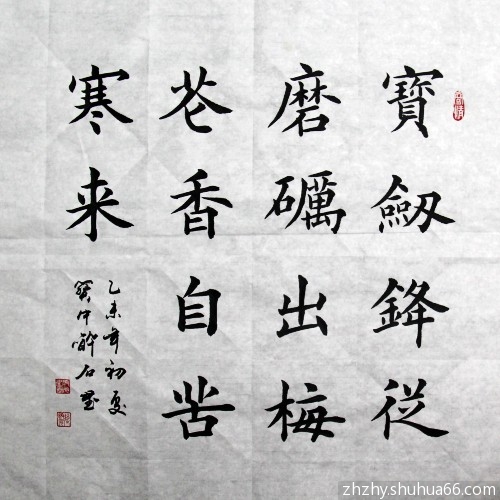 寶劔鋒從
磨礪出梅
花香自苦
寒来
乙未年初夏
中醉石
zhzhy.shuhua66.com